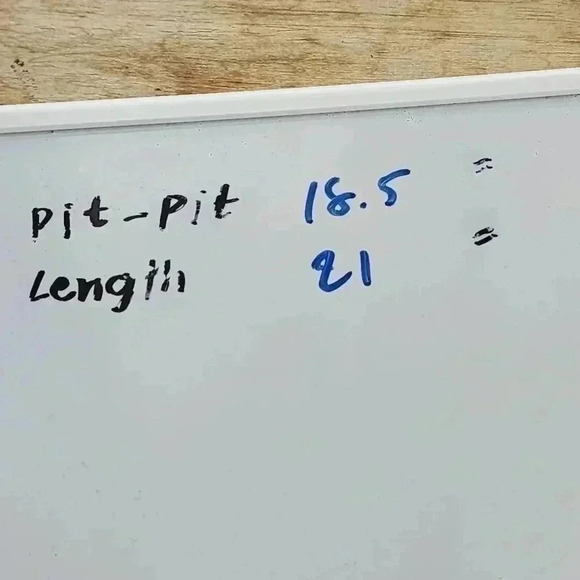 Pit-Pit 18.5 "
Length 21 "